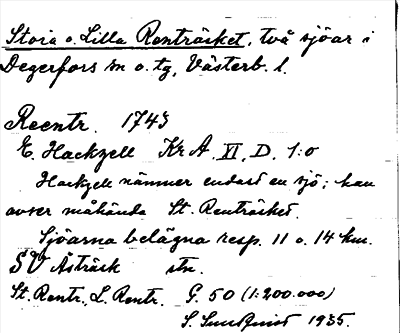 Stora o. Lilla Renträsket, två sjöar i
Degerfors sn o. tg, Västerb. l.
Reentr. 1743
E. Hackzell Kr A. XI, D. 1:o
Hackzell nämner endast en sjö; han
avser måhända St. Renträsket.
Sjöarna belägna resp. 11 o. 14 km.
SV Åsträsk stn.
St. Rentr., L. Rentr. G. 50 (1:200.000)
S. Sundquist 1935.